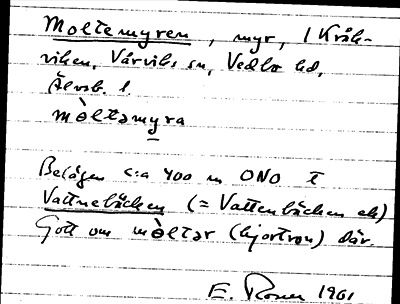 Moltemyren, myr, i Kråk-
viken, Vårviks sn, Vedbo hd,
Älvsb. l.
mòltəmyra
Belägen c:a 400 m ONO t
Vattnebäcken (= Vattenbäcken ek)
Gott om mòltər (hjortron) där.
E. 1961